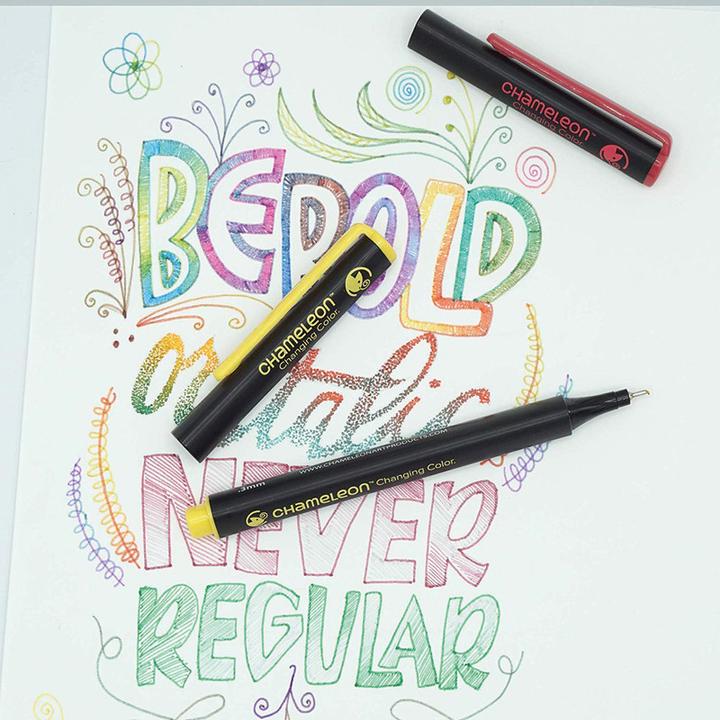 CHAMELEON™
Changing Color.
BE BOLD
or italic
CHAMELEON™
Changing Color.
www.chameleonartproducts.com
.3mm
CHAMELEON™ Changing Color.
NEVER
REGULAR